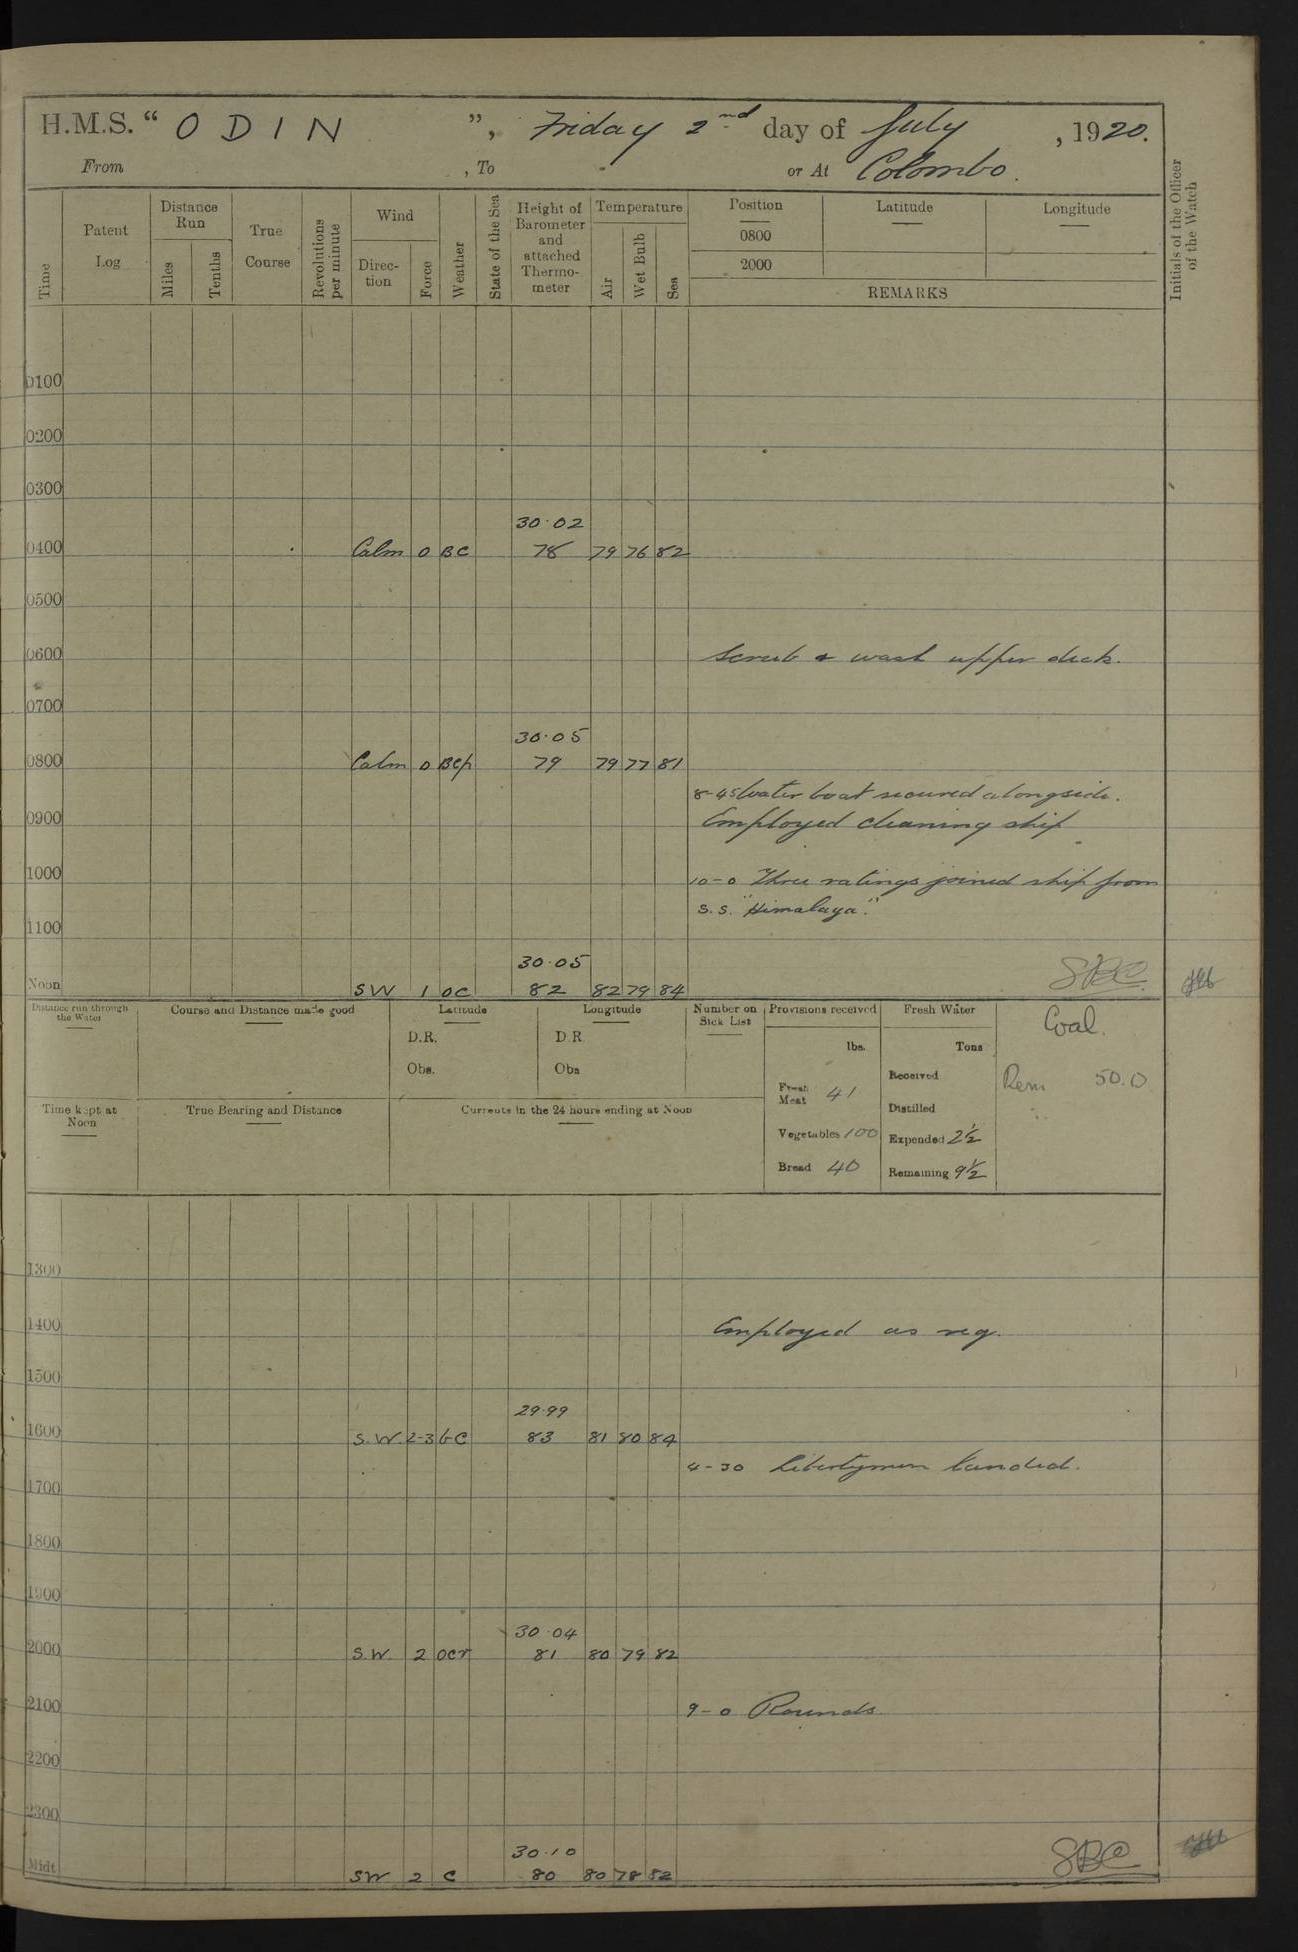 H.M.S. “ ODIN ”, Friday 2nd day of July, 1920.
From , To or At Colombo.
Time
Patent Log
Distance Run
Miles
Tenths
True Course
Revolutions per minute
Wind
Direc-tion
Force
Weather
State of the Sea
Height of Barometer and attached Thermo-meter
Temperature
Air
Wet Bulb
Sea
Position
0800
2000
Latitude
Longitude
REMARKS
Initials of the Officer of the Watch
0100
0200
0300
30.02
0400 Calm 0 BC 78 79 76 82
0500
0600 Scrub & wash upper deck.
0700
30.05
0800 Calm 0 BCp 79 79 77 81
8-45 Water boat secured alongside.
0900 Employed cleaning ship
1000 10-0 Three ratings joined ship from
S.S. "Himalaya".
1100
30.05
Noon SW 1 OC 82 82 79 84 SBC
Distance run through the Water
Course and Distance made good
Latitude
D.R.
Obs.
Longitude
D R
Obs
Number on Sick List
Provisions received
lbs.
Fresh Meat 41
Vegetables 100
Bread 40
Fresh Water
Tons
Received
Distilled
Expended 2½
Remaining 9½
Coal.
Rem 50.0
Time kept at Noon
True Bearing and Distance
Currents in the 24 hours ending at Noon
1300
1400 Employed as req.
1500
29.99
1600 S.W. 2-3 bc 83 81 80 84
4-30 Libertymen landed.
1700
1800
1900
30.04
2000 S.W. 2 ocr 81 80 79 82
2100 9-0 Rounds
2200
2300
30.10
Midt SW 2 C 80 80 78 82 SBC